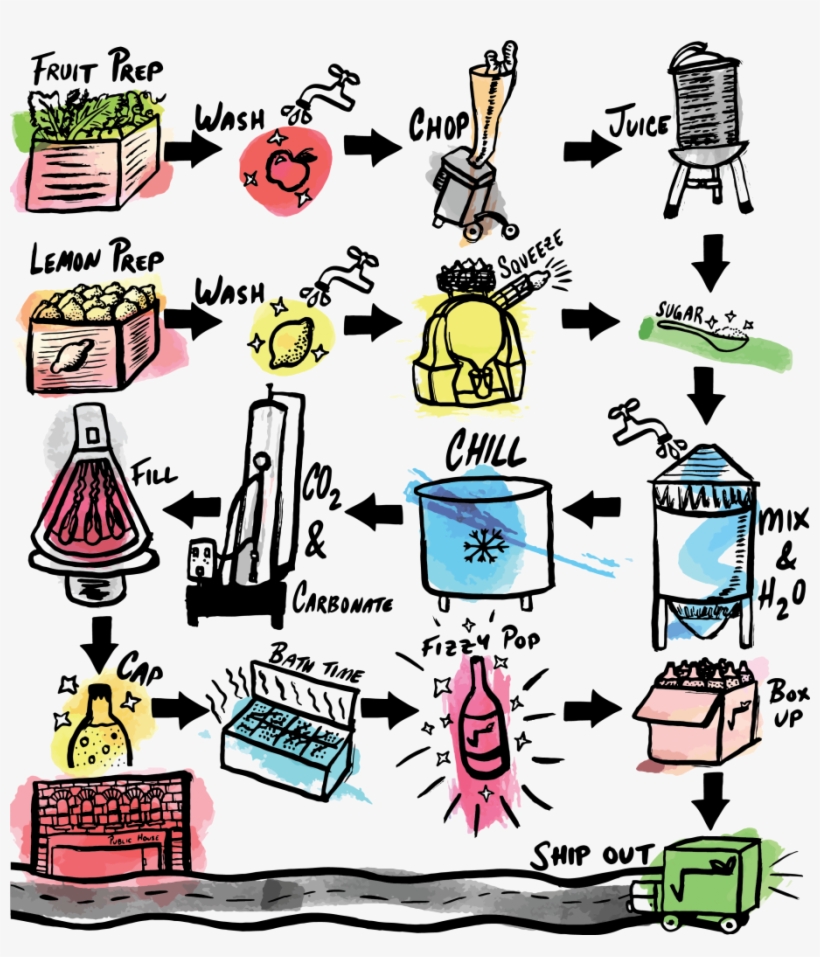 FRUIT PREP
WASH
CHOP
JUICE
LEMON PREP
WASH
SQUEEZE
SUGAR
FILL
CO2
&
CARBONATE
CHILL
MIX
&
H2O
CAP
BATH TIME
FIZZY POP
BOX
UP
PUBLIC HOUSE
SHIP OUT